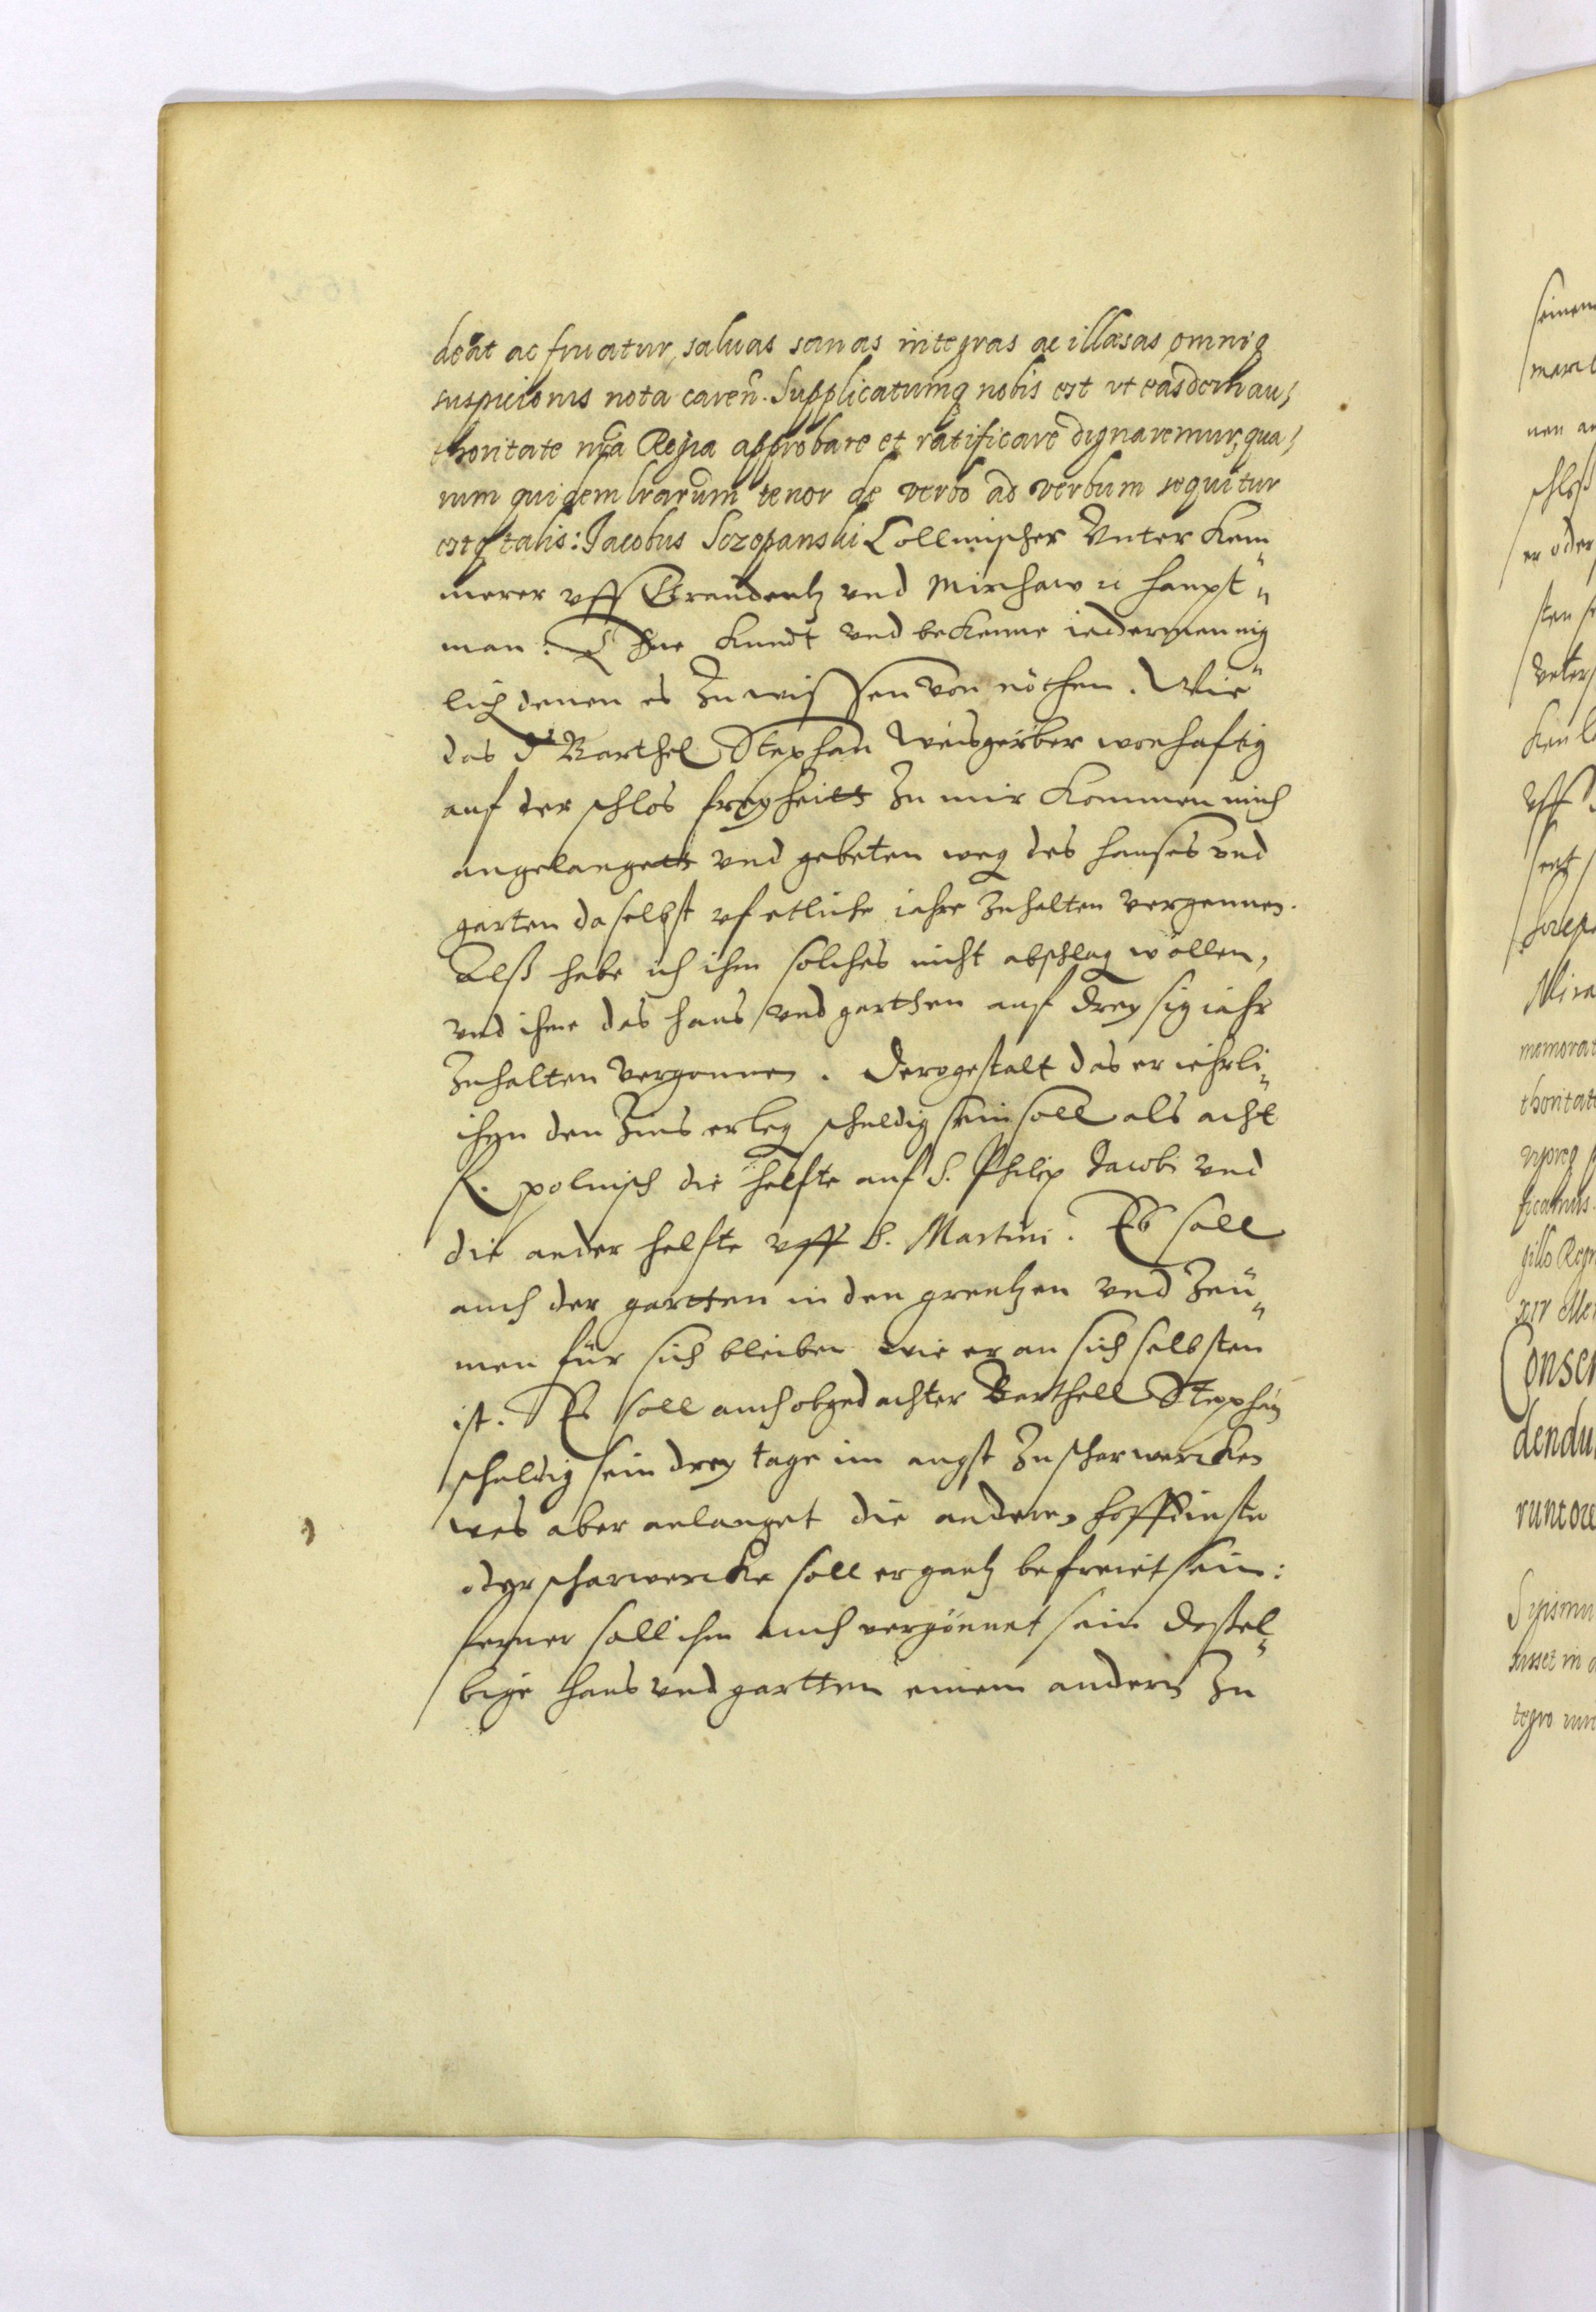 deat ac fruatur, saluas sanas integras ac illæsas, omniq
suspicionis nota caren̄. Supplicatumq nobis est vt easdem au,
thoritate nr̄a Regia approbare et ratificare dignaremur, qua,
rum quidem lrarum tenor de verbo ad verbum sequitur
estq talis: Jacobus Sczepanski Collmischer Vnter Kem„
merer vff Graudentz vnd Mirchaw ꝛc haupt„
man. Thue kundt vnd bekenne iedermennig„
lich denen es zuwissen von nöthen. Wie
das d Barthel Stephan Weisgerber wonhaftig
auf der schlos freyheitt zu mir kommen mich
angelangett vnd gebeten weg des hauses vnd
garten daselbst vf etliche iahre zuhalten vergennen.
Alß habe ich ihm solches nicht abschlag wöllen,
vnd ihme das haus vnd garthen auf dreysig iahr
zuhalten vergonnen. Dergestalt das er iehrli„
chen den Zins erleg schuldig sein soll als acht
fl. polnisch die helfte auf S. Philip Jacobi vnd
die ander helfte vff S. Martini. Es soll
auch der gartten in den grentzen vnd Zeü„
men für sich bleiben wie er an sich selbsten
ist. Es soll auch obgedachter Barthell Stephan
schuldig sein drey tage im augst zuscharwercken
was aber anlanget die anderen hoffdienste
oder scharwercke soll er gantz befreiet sein:
ferner soll ihm auch vergönnet sein dassel„
bige haus vnd gartten einem andern zu